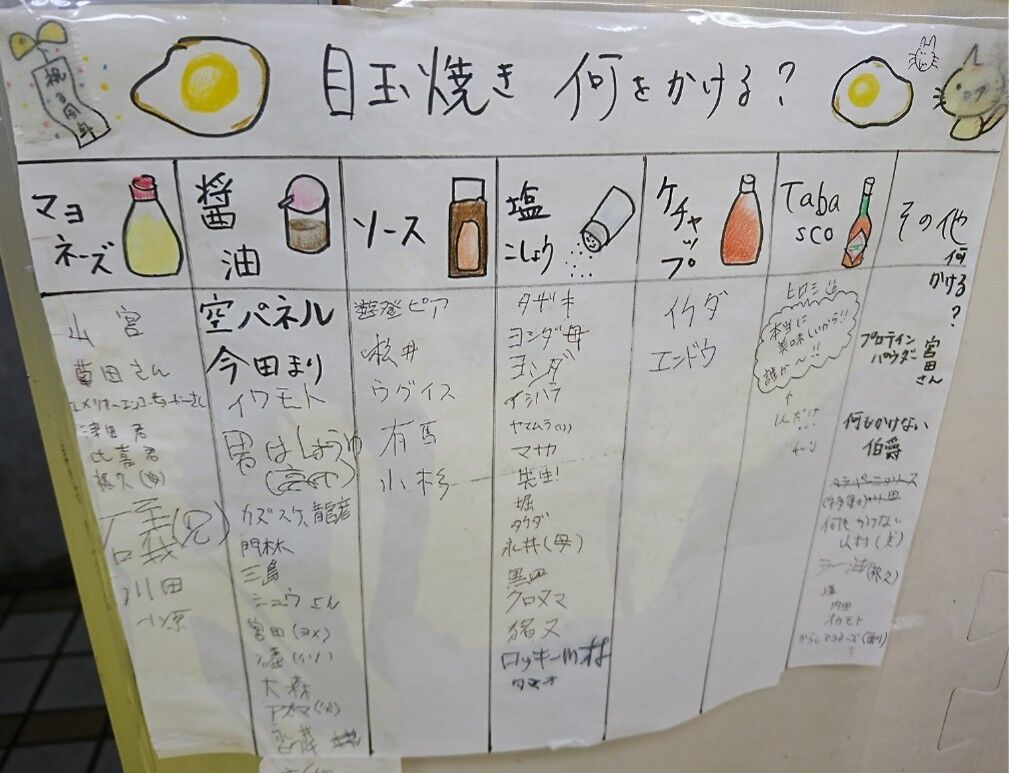 目玉焼き 何をかける?
マヨネーズ
山宮
さん
津田君
比嘉君
川田
小原
醤油
空パネル
今田まり
イワモト
男はしょうゆ
カズスケ、龍彦
門林
三島
シュウさん
宮田(ヨメ)
大森
アズマ
ソース
遊発ピア
松井
ウグイス
有馬
小杉
塩こしょう
タザキ
ヨシダ母
ヨシダ
イシハラ
ヤマムラ
マサカ
先生!
堀
タケダ
永井(母)
黒田
クロヌマ
猪又
ロッキー川村
ケチャップ
イケダ
エンドウ
Tabasco
ヒロミ
本当に
美味しいから!!
誰か〜!!
その他
何
かける
?
プロテイン
パウダー
宮田さん
何もかけない
伯爵
何もかけない
山村(夫)
ラー油
塩
内田
イカモト
からしマヨネーズ